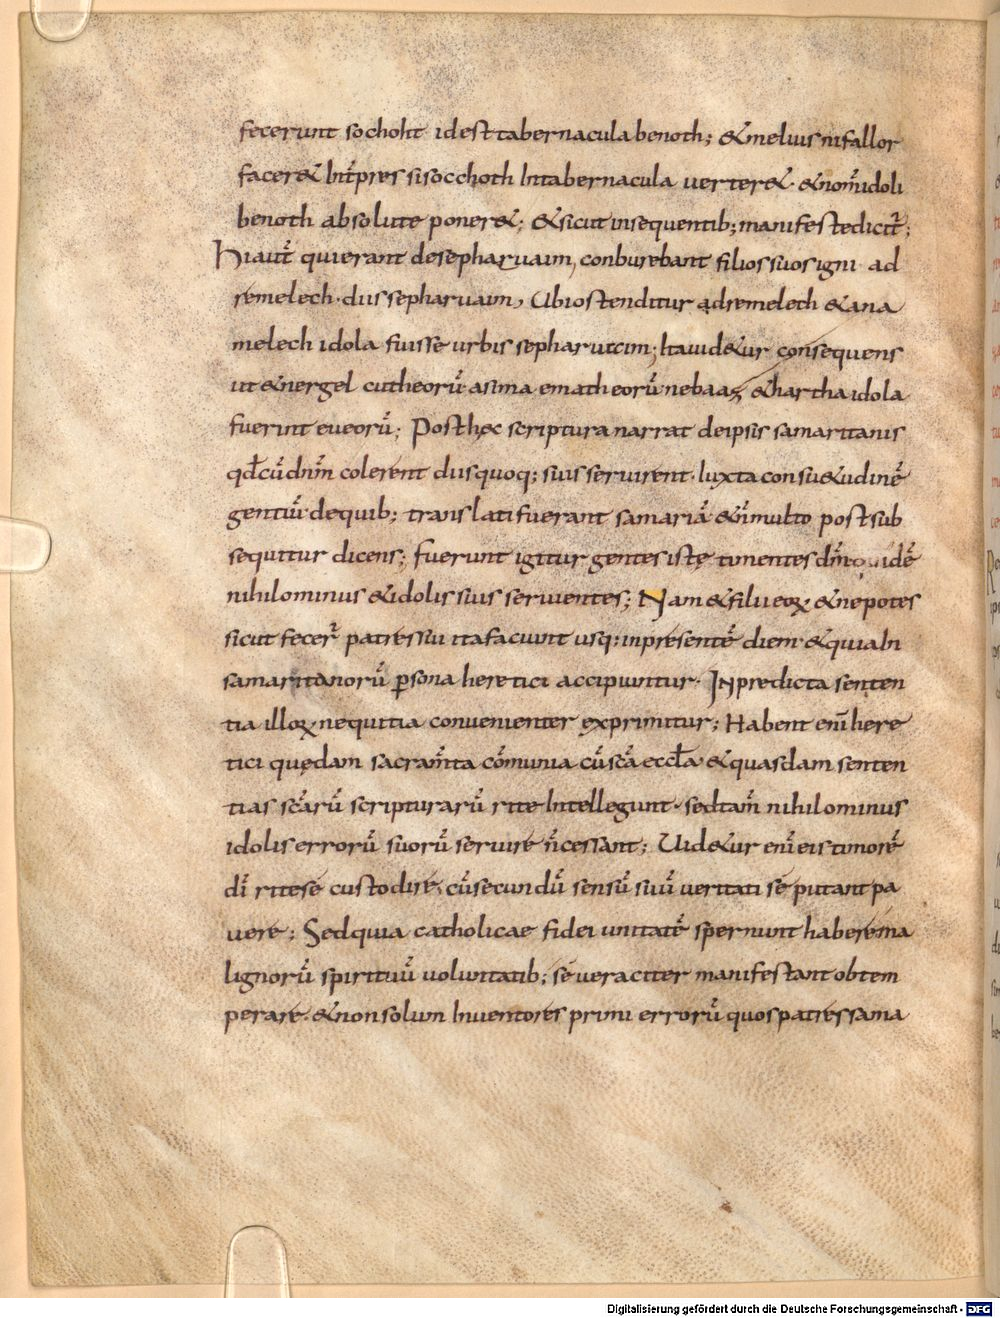 fecerunt sochoht id est tabernacula benoth; & melius ni fallor
facer& int̅pres si socchoth in tabernacula uerter&· & nom̅ idoli
benoth absolute poner&; & sicut in sequentib; manifeste dicit̅;
Hi aut̅ qui erant de sepharuaim, conburebant filios suos igni ad
remelech· diis sepharuaim, Ubi ostenditur adremelech & ana
melech idola fuisse urbis sepharuaim; Ita uid&ur consequens
ut & nergel cutheoru̅ asima ematheoru̅ nebaaz & hartha idola
fuerint eueoru̅; Post hęc scriptura narrat de ipsis samaritanis
qd̅ cu̅ dn̅m colerent diis quoq; suis seruirent· Iuxta consu&udine̅
gentiu̅ de quib; translati fuerant samaria̅ & n̅ multo post sub
sequitur dicens; fuerunt igitur gentes istę timentes dm̅ quide̅
nihilominus & idolis suis seruientes; Nam & filii eoꝝ & nepotes
sicut fecer̅ patres sui ita faciunt usq; in presente̅ diem· & quia In
samaritanoru̅ ꝑsona heretici accipiuntur· In predicta senten
tia illoꝝ nequitia conuenienter exprimitur; Habent eni̅ here
tici quędam sacram̅ta co̅munia cu̅ sc̅a eccl̅a & quasdam senten
tias sc̅aru̅ scripturaru̅ rite Intellegunt· sed tam̅ nihilominus
idolis erroru̅ suoru̅ seruire n̅ cessant; Uid&ur eni̅ eis timore̅
di̅ rite se custodire, cu̅ secundu̅ sensu̅ suu̅ ueritati se putant pa
uere; Sed quia catholicae fidei unitate̅ spernunt habere ma
lignoru̅ spirituu̅ uoluntatib; se ueraciter manifestant obtem
perare· & non solum Inuentores primi erroru̅ quos patres sama
Digitalisierung gefördert durch die Deutsche Forschungsgemeinschaft - DFG